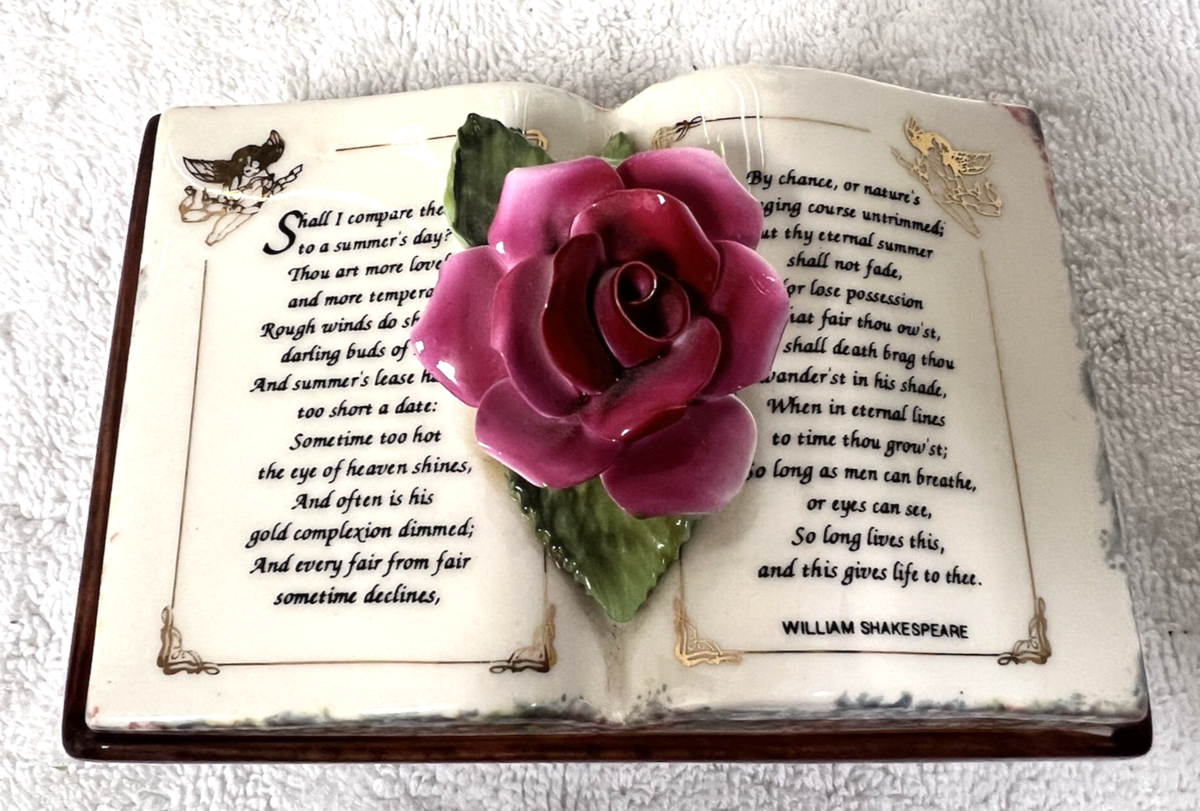 Shall I compare the
to a summer's day?
Thou art more lovel
and more tempera
Rough winds do sh
darling buds of
And summer's lease ha
too short a date:
Sometime too hot
the eye of heaven shines,
And often is his
gold complexion dimmed;
And every fair from fair
sometime declines,
By chance, or nature's
ging course untrimmed;
ut thy eternal summer
shall not fade,
or lose possession
hat fair thou ow'st,
shall death brag thou
wander'st in his shade,
When in eternal lines
to time thou grow'st;
So long as men can breathe,
or eyes can see,
So long lives this,
and this gives life to thee.
WILLIAM SHAKESPEARE